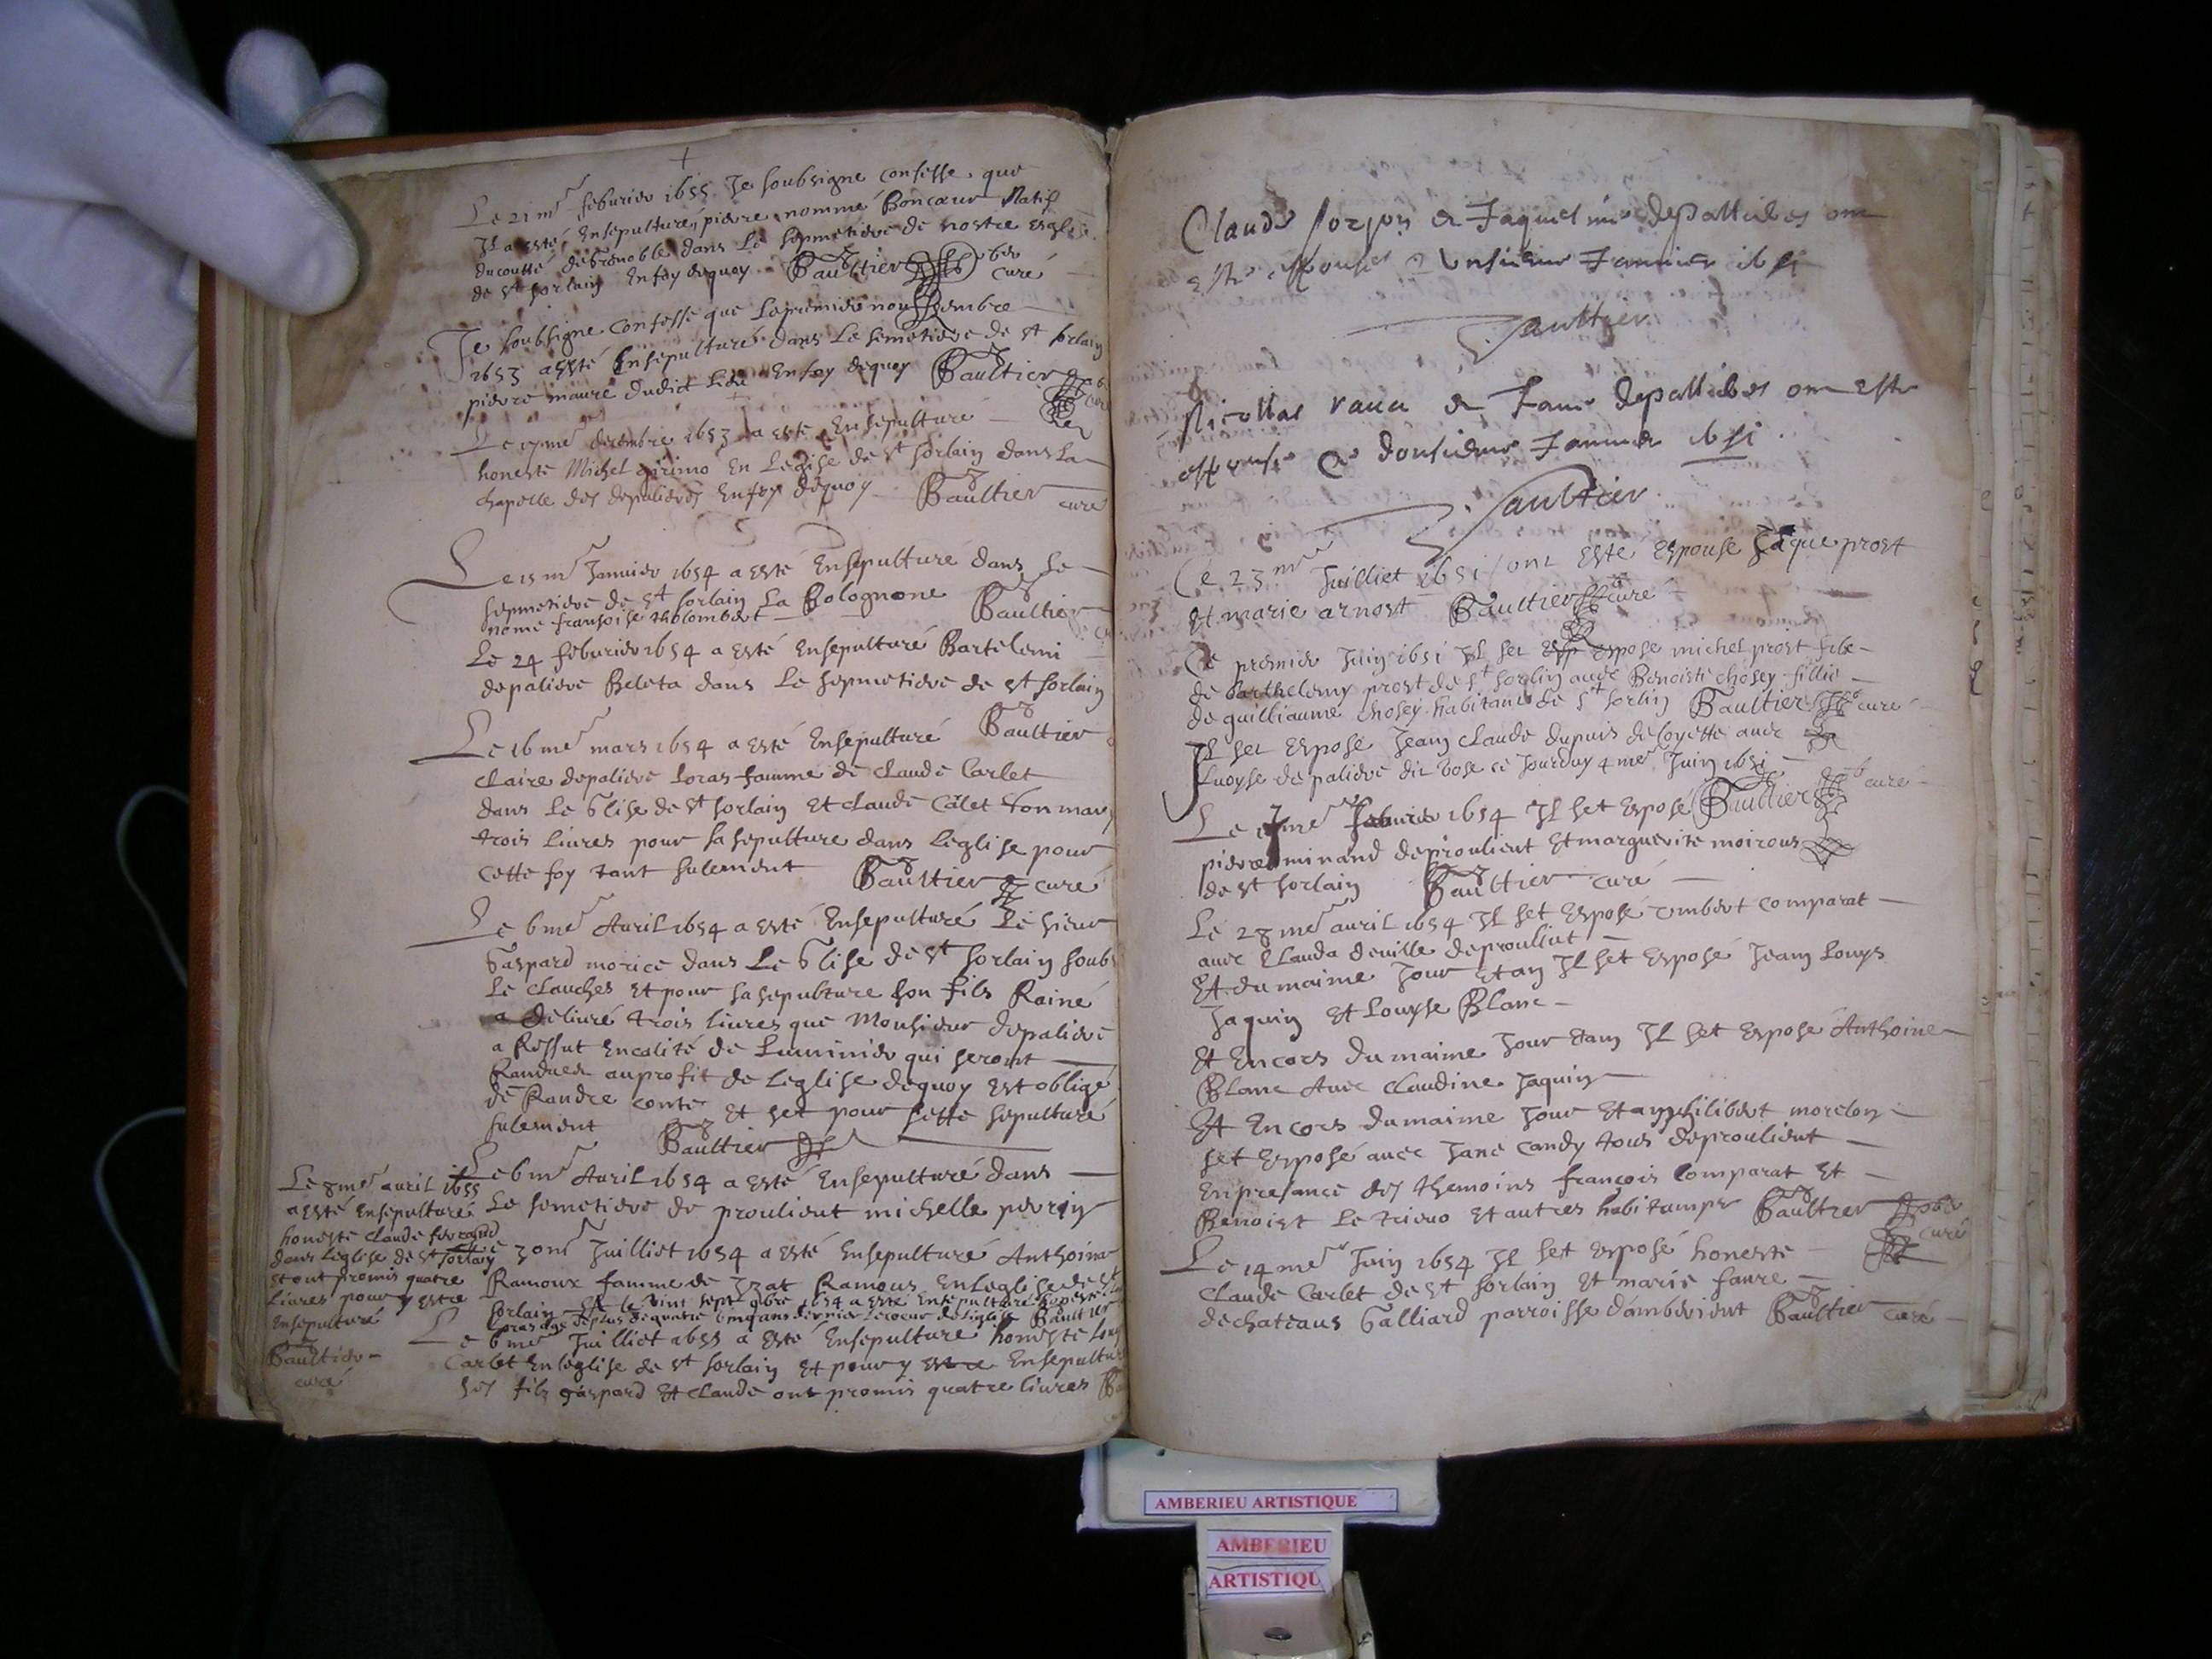 Le 21me feburier 1655 Je soubsigne confesse que
Il a esté Ensepulturé pierre nommé Boncœur Natif
du coutté de Grenoble dans Le sepmetiere de nostre esglise
de St sorlain En foy dequoy Gaultier curé
Je soubsigne confesse que Le premier nouembre
1653 a esté Ensepulturé dans Le semetiere de St sorlain
pierre maure dudict Lieu En foy dequoy Gaultier curé
decembre 1653 a esté Ensepulturé
honeste Michel En Leglise de St sorlain dans La
chapelle des depalieres En foy dequoy Gaultier curé
Le 15me Januier 1654 a esté Ensepulturé dans Le
sepmetiere de St sorlain La Bolognone
nomé fransoise Gaultier
Le 24 feburier 1654 a esté Ensepulturé Bartelemi
depaliere Beleta dans Le sepmetiere de St sorlain
Gaultier
Le 16me mars 1654 a esté Ensepulturé
Claire depaliere Loras famme de Claude Carlet
dans Le Glise de St sorlain Et Claude Calet son mary
trois Liures pour sa sepulture dans Leglise pour
cette foy tant sulement Gaultier curé
Le 6me Auril 1654 a esté Ensepulturé Le sieur
Gaspard morice dans Le Glise de St sorlain soubs
Le clauches Et pour sa sepulture son fils Rainé
a deliuré trois Liures que Monsieur depaliere
a Ressut En calité de Luminier qui seront
Randues au profit de Leglise dequoy Est obligé
de Randre conte Et set pour sette sepulture
sulement Gaultier
Le 6me Auril 1654 a esté Ensepulturé dans
Le semetiere de proulieut michelle perrin
Le 8me auril 1655
a esté Ensepulturé
honeste Claude
dans Leglise de St sorlain
et ont promis quatre
Liures pour y estre
Ensepulturé
Gaultier
curé
Le 30me Juilliet 1654 a esté Ensepulturé Anthoina
Ramoux famme de Izat Ramous En Leglise de St
sorlain Et le vint sept 9bre 1654 a esté Ensepulturé honeste
Loras age de plus de quatre vingt ans Gaultier
Le 6me Juilliet 1655 a esté Ensepulturé honeste
Carlet En leglise de St sorlain Et pour y estre Ensepulturé
ses fils gaspard Et Claude ont promis quatre liures
Claude sorjon et Jaquemine depallieres ont
este espouses Januier 1651
Gaultier
Nicollas et Jane depallieres ont este
espouse Januier 1651
Gaultier
Ce 23me Juilliet 1651 ont este espouse Jaque prost
Et marie arnost Gaultier curé
Ce premier Juin 1651 Il set espose michel prost
de Barthelemy prost de St sorlin auec Benoiste chosey fillie
de guilliaume chosey habitant de St sorlin Gaultier curé
Il set Espose Jean Claude dupuis de Loyette auec
Luoyse depaliere dit Bose ce Jourduy 4me Juin 1651
Gaultier curé
Le 7me feburier 1654 Il set Esposé
pierre minand de proulieut Et marguerite moirous
de St sorlain Gaultier curé
Le 28me auril 1654 Il set Esposé Comparat
auec Clauda deuille de proulieut
Et du maime Jour Et an Il set Esposé Jean Louys
Jaquin Et Louyse Blanc
Et Encors du maime Jour Et an Il set Esposé Anthoine
Blanc Auec Claudine Jaquin
Et Encors du maime Jour Et an philibert morelon
set Esposé auec Jane Candy tous de proulieut
En presance des themoins francois Comparat Et
Benoist Et autres habitamps Gaultier
curé
Le 14me Juin 1654 Il set Esposé honeste
Claude Carlet de St sorlain Et marie faure
de chateaus Galliard parroisse damberieut Gaultier curé
AMBERIEU ARTISTIQUE
AMBERIEU
ARTISTIQU